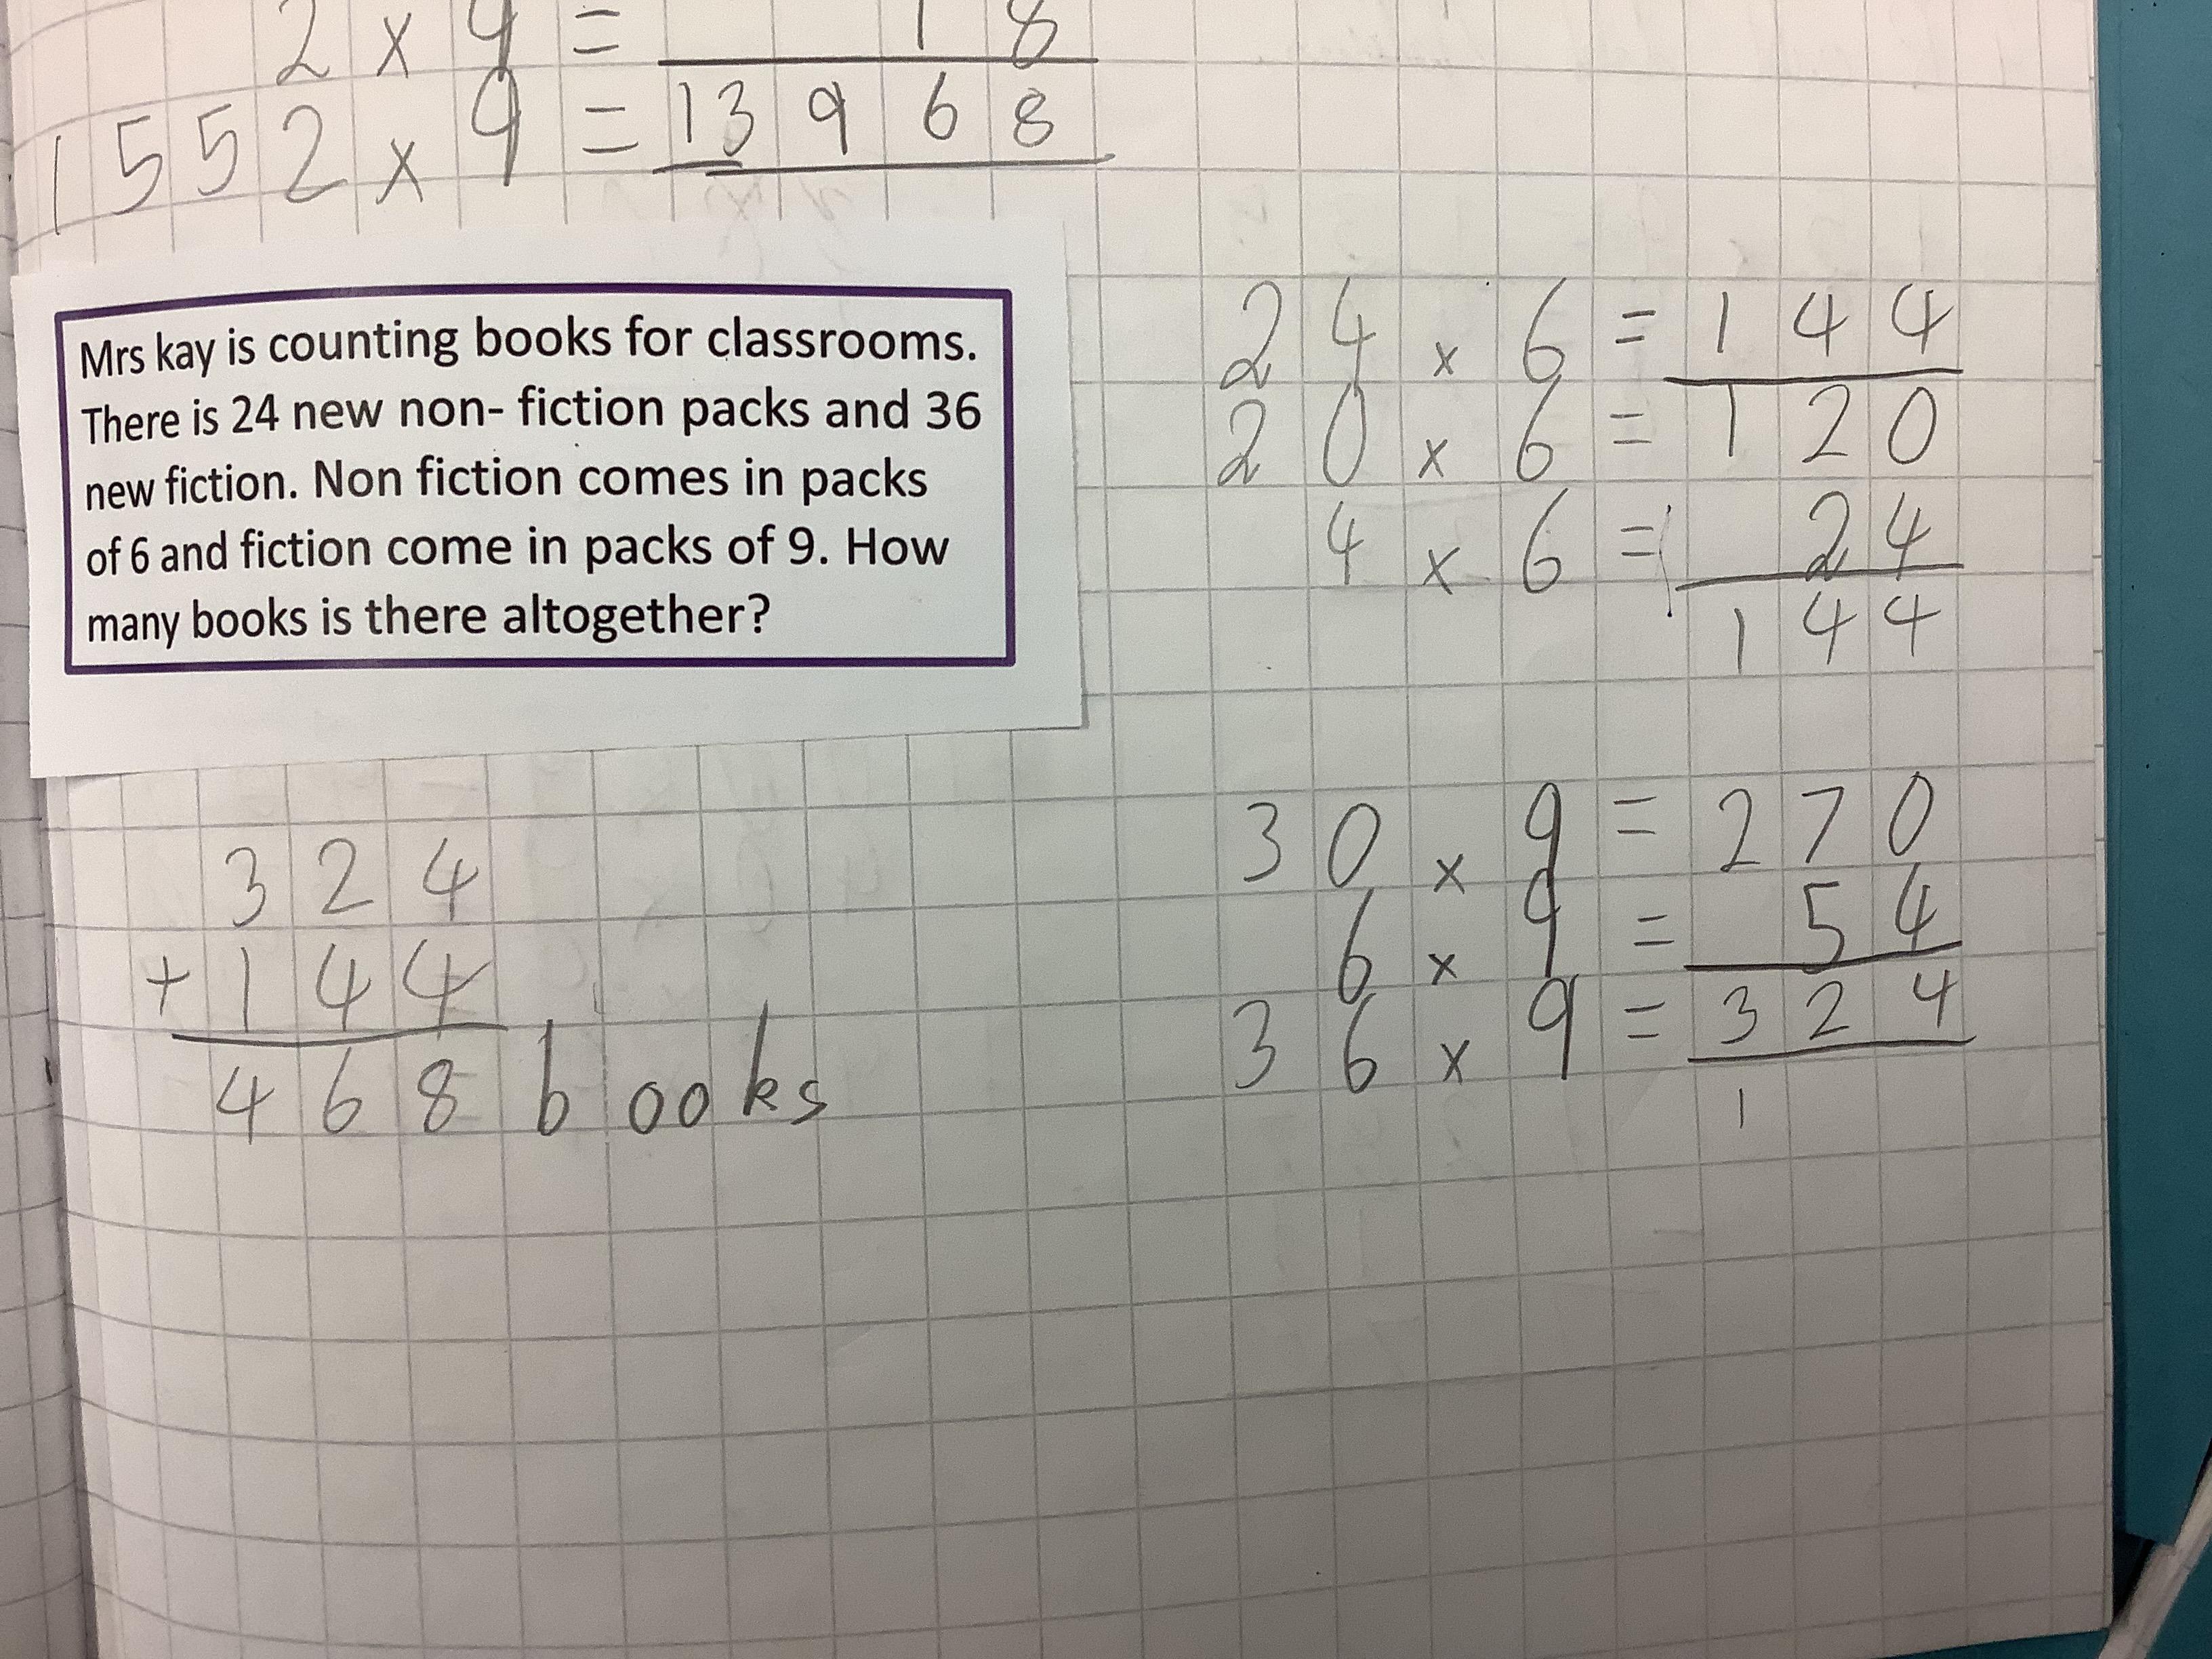 2 × 9 = 18
1552 × 9 = 13968
Mrs kay is counting books for classrooms.
There is 24 new non- fiction packs and 36
new fiction. Non fiction comes in packs
of 6 and fiction come in packs of 9. How
many books is there altogether?
24 × 6 = 144
20 × 6 = 120
4 × 6 = 24
144
30 × 9 = 270
6 × 9 = 54
36 × 9 = 324
1
324
+ 144
468 books